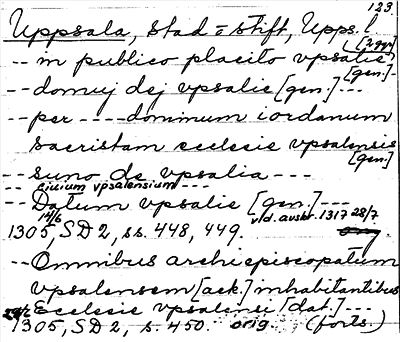 123.
Uppsala, stad o stift, Upps. l
[2 ggr]
-- in publico placito vpsalie
[gen.] -
-- domuj dej vpsalie [gen.] ---
-- per ---- dominum iordanum
sacristam ecclesie vpsalensis
[gen.]
-- suno de vpsalia ---
-- ciuium vpsalensium ---
-- Datum vpsalie [gen.] ---
14/6 vid. avskr. 1317 28/7
1305, SD 2, ss. 448, 449. orig
-- Omnibus archiepiscopatum
vpsalensem [ack.] inhabitantibus
-- Ecclesie vpsalensi [dat.] ---
1305, SD 2, s. 450. orig. (forts.)